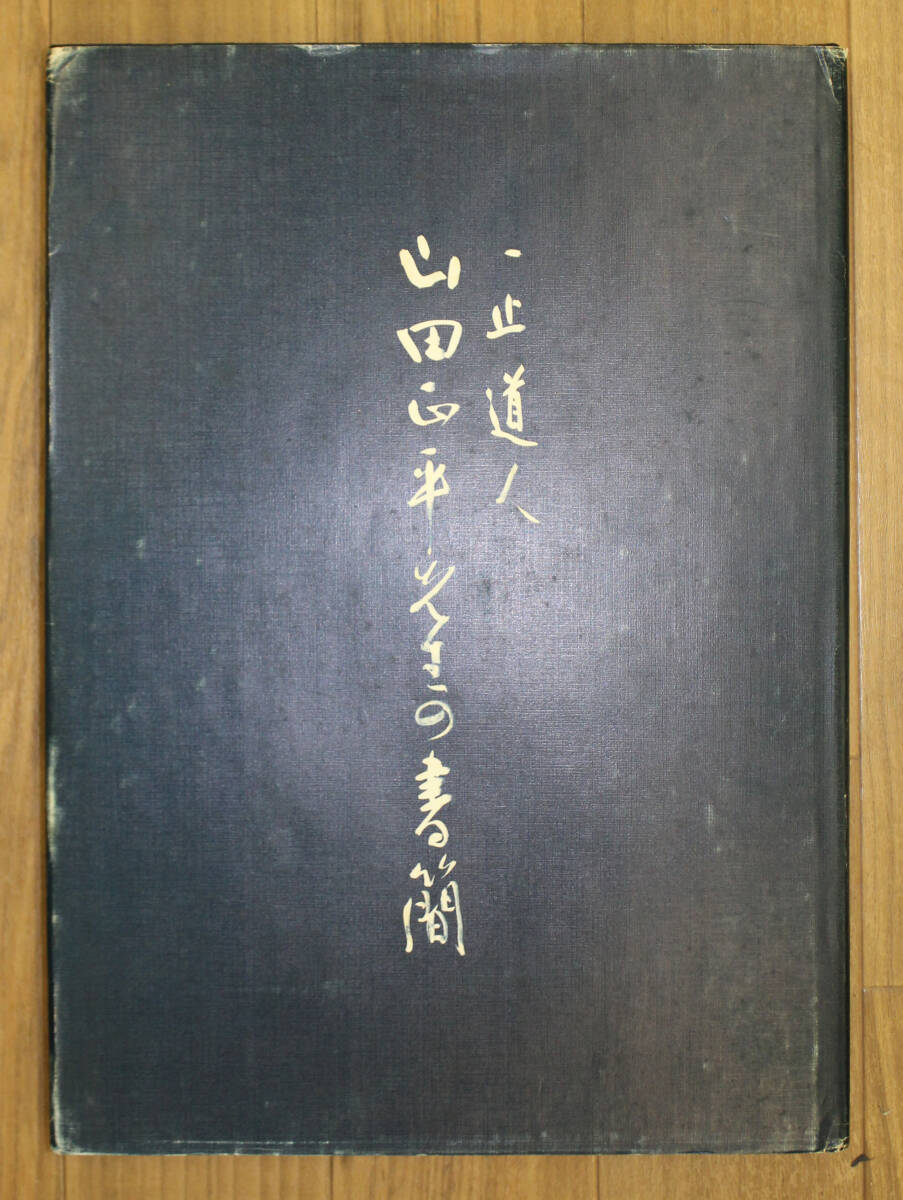 一止道人
山田正平先生の書簡